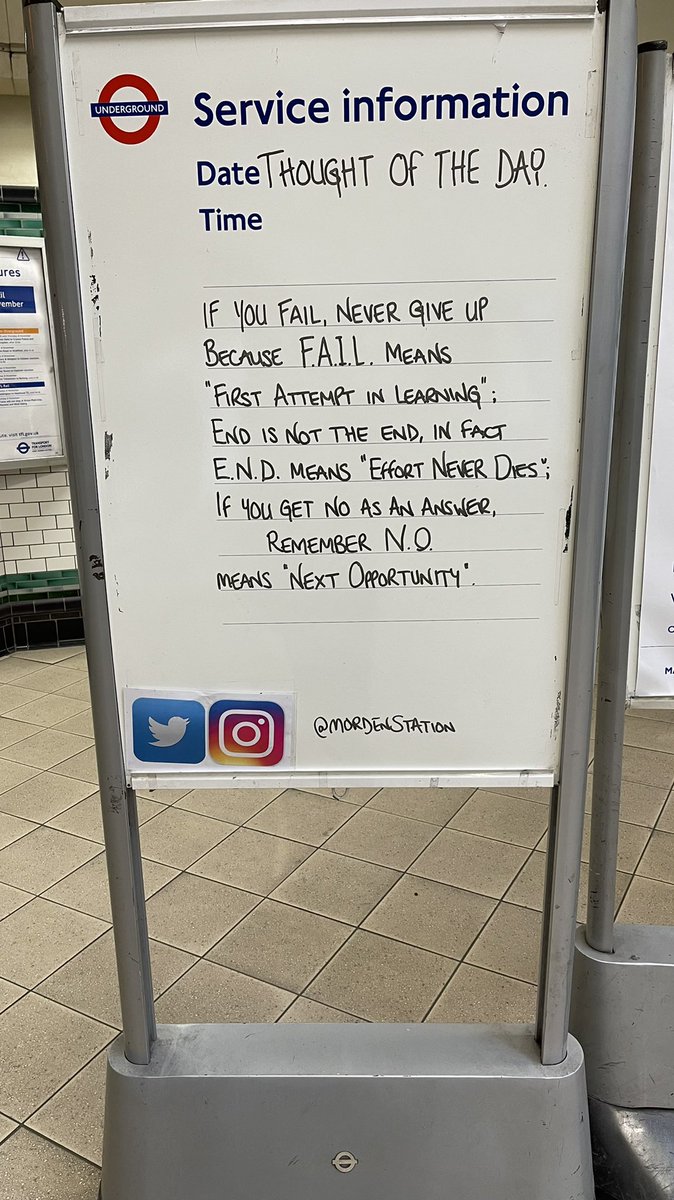 UNDERGROUND
Service information
Date THOUGHT OF THE DAY.
Time
IF YOU FAIL, NEVER GIVE UP
BECAUSE F.A.I.L. MEANS
"FIRST ATTEMPT IN LEARNING";
END IS NOT THE END, IN FACT
E.N.D. MEANS "EFFORT NEVER DIES";
IF YOU GET NO AS AN ANSWER,
REMEMBER N.O.
MEANS "NEXT OPPORTUNITY".
@MORDENSTATION
ures
vember
TRANSPORT
FOR LONDON